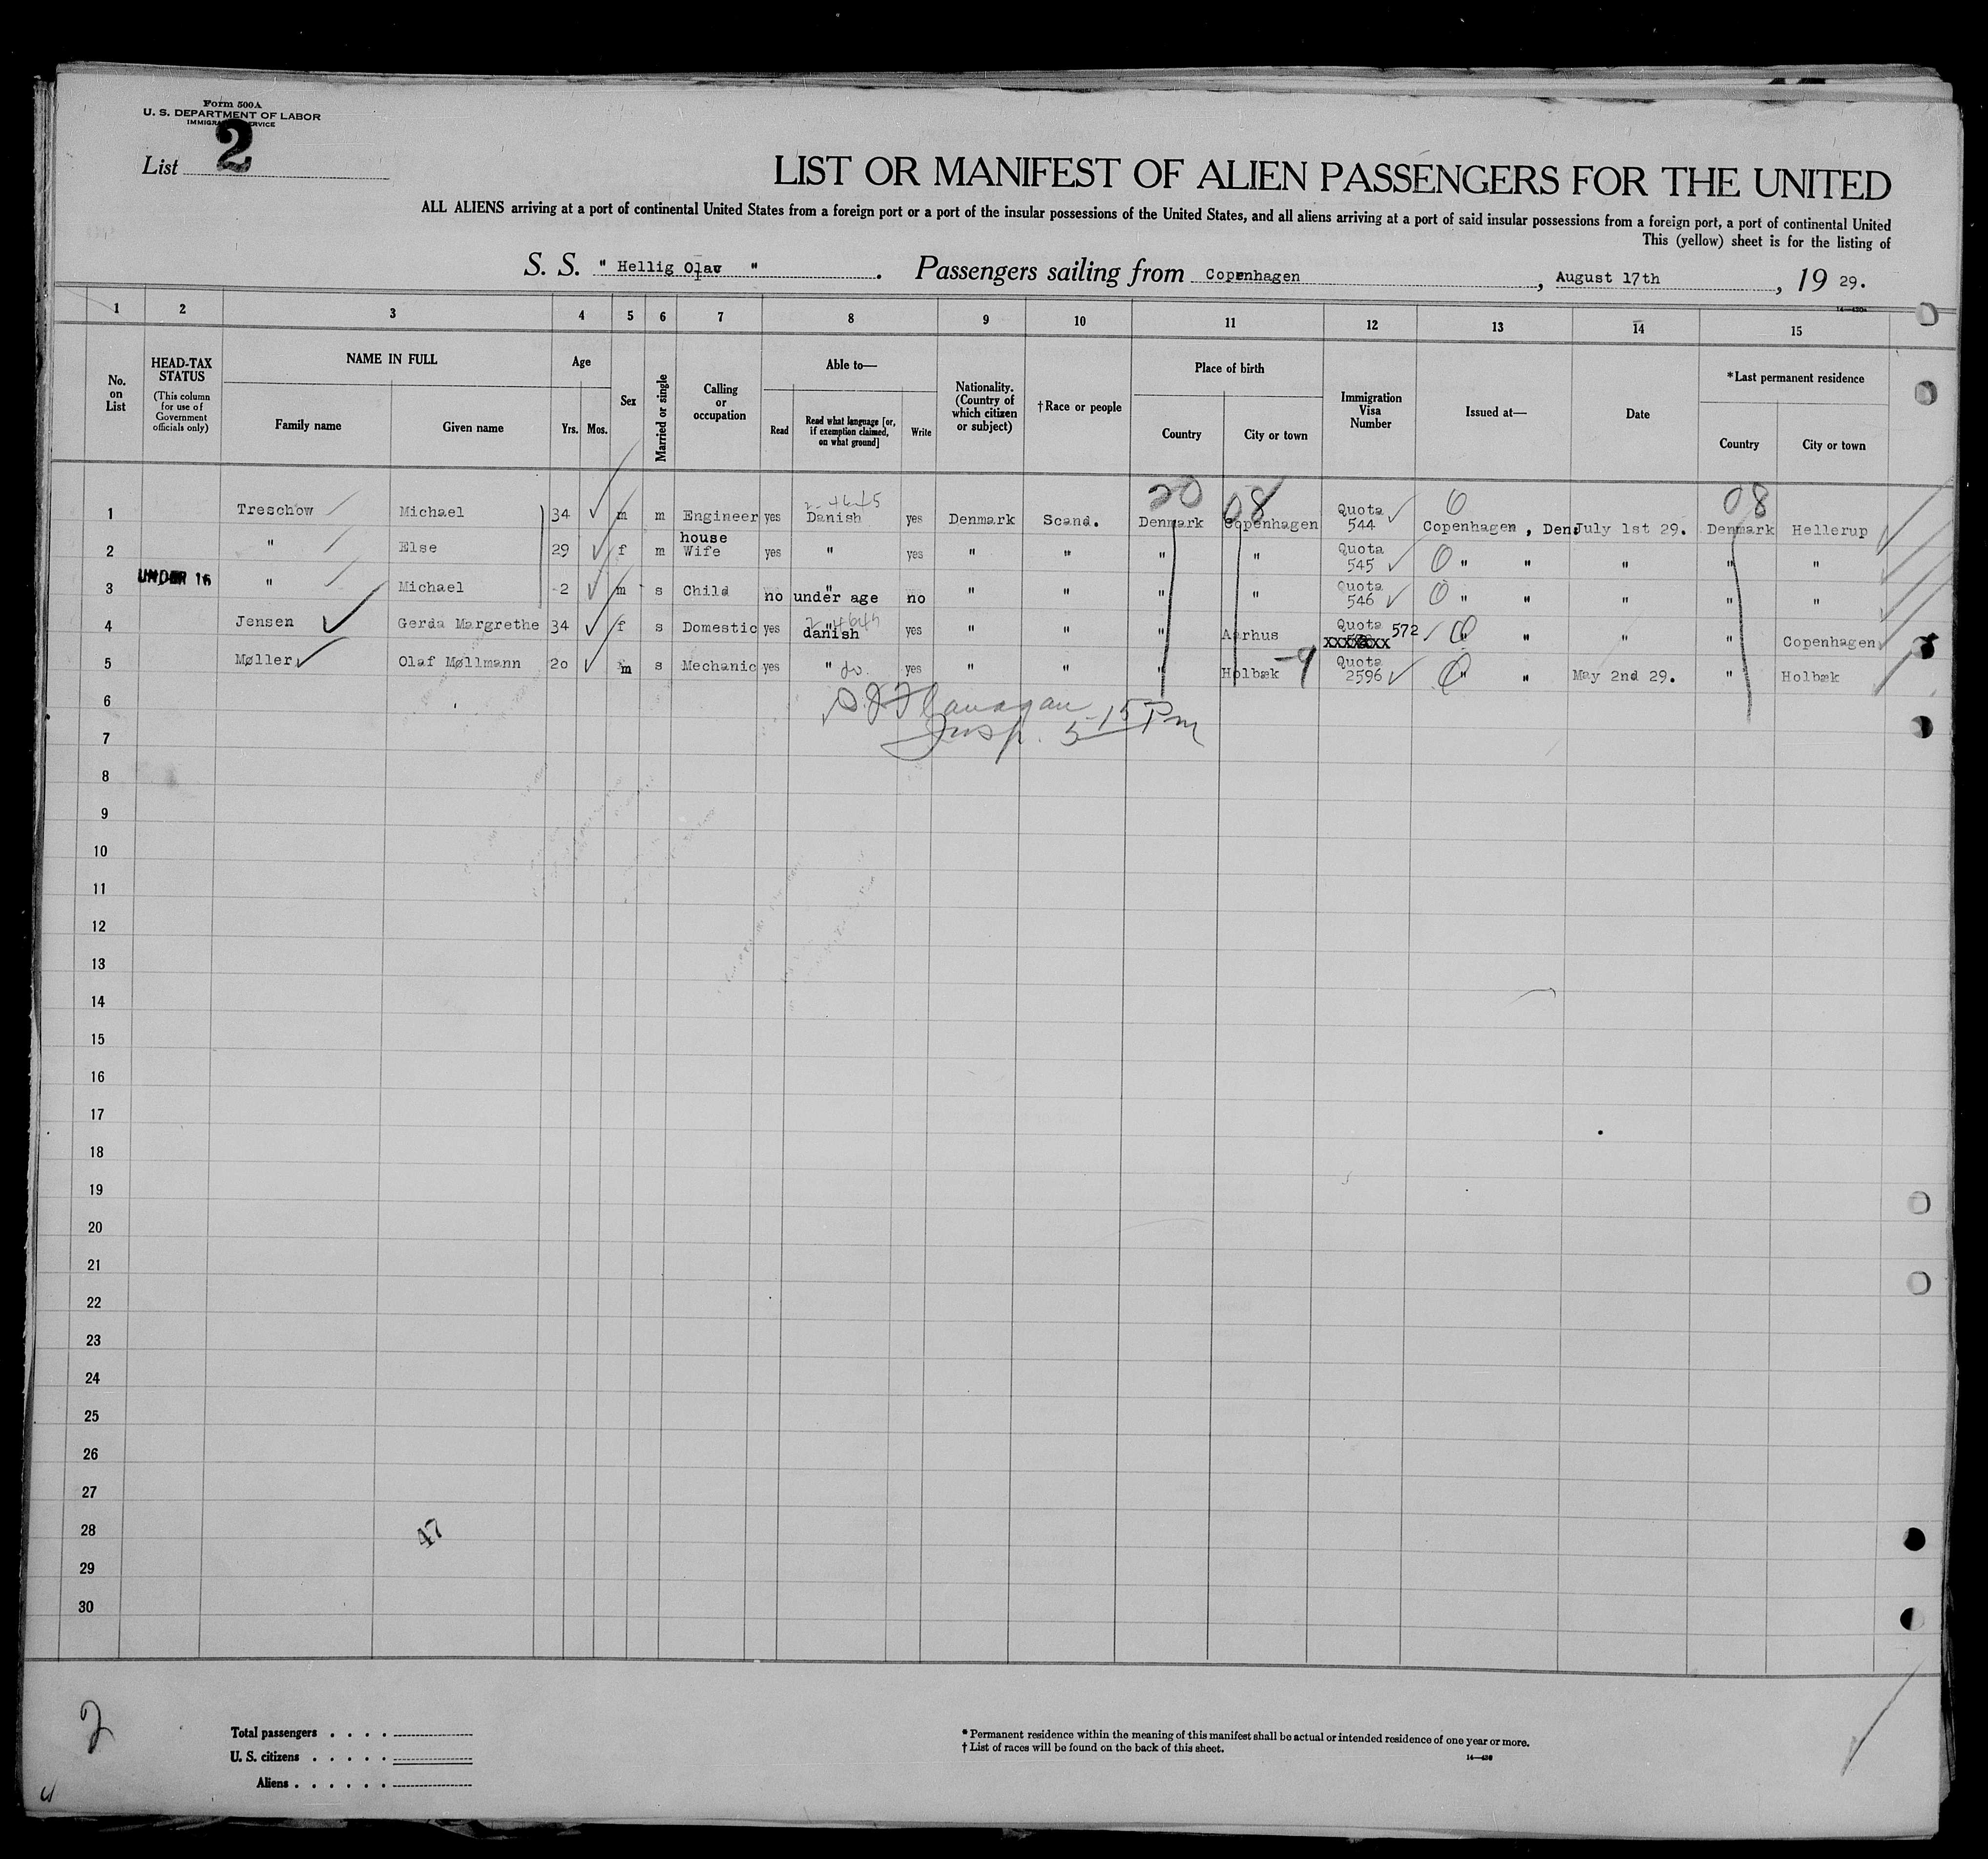 Form 500A
U. S. DEPARTMENT OF LABOR
IMMIGRATION SERVICE
List 2
LIST OR MANIFEST OF ALIEN PASSENGERS FOR THE UNITED
ALL ALIENS arriving at a port of continental United States from a foreign port or a port of the insular possessions of the United States, and all aliens arriving at a port of said insular possessions from a foreign port, a port of continental United
This (yellow) sheet is for the listing of
S. S. " Hellig Olav " . Passengers sailing from Copenhagen , August 17th , 19 29.
1 2 3 4 5 6 7 8 9 10 11 12 13 14 15
No. on List
HEAD-TAX STATUS (This column for use of Government officials only)
NAME IN FULL
Family name Given name
Age
Yrs. Mos.
Sex
Married or single
Calling or occupation
Able to—
Read Read what language [or, if exemption claimed, on what ground] Write
Nationality. (Country of which citizen or subject)
†Race or people
Place of birth
Country City or town
Immigration Visa Number
Issued at—
Date
*Last permanent residence
Country City or town
20 08 08
1 Treschow Michael 34 m m Engineer yes Danish yes Denmark Scand. Denmark Copenhagen Quota 544 Copenhagen , Den. July 1st 29. Denmark Hellerup
2 " Else 29 f m house Wife yes " yes " " " " Quota 545 " " " " "
3 UNDER 16 " Michael 2 m s Child no under age no " " " " Quota 546 " " " " "
4 Jensen Gerda Margrethe 34 f s Domestic yes danish yes " " " Aarhus Quota 572 " " " " Copenhagen
5 Møller Olaf Møllmann 20 m s Mechanic yes " do. yes " " " Holbæk Quota 2596 " " May 2nd 29. " Holbæk
6
Flanagan
Insp. 5 15 Pm
7
8
9
10
11
12
13
14
15
16
17
18
19
20
21
22
23
24
25
26
27
28
47
29
30
2
Total passengers
U. S. citizens
Aliens
* Permanent residence within the meaning of this manifest shall be actual or intended residence of one year or more.
† List of races will be found on the back of this sheet.